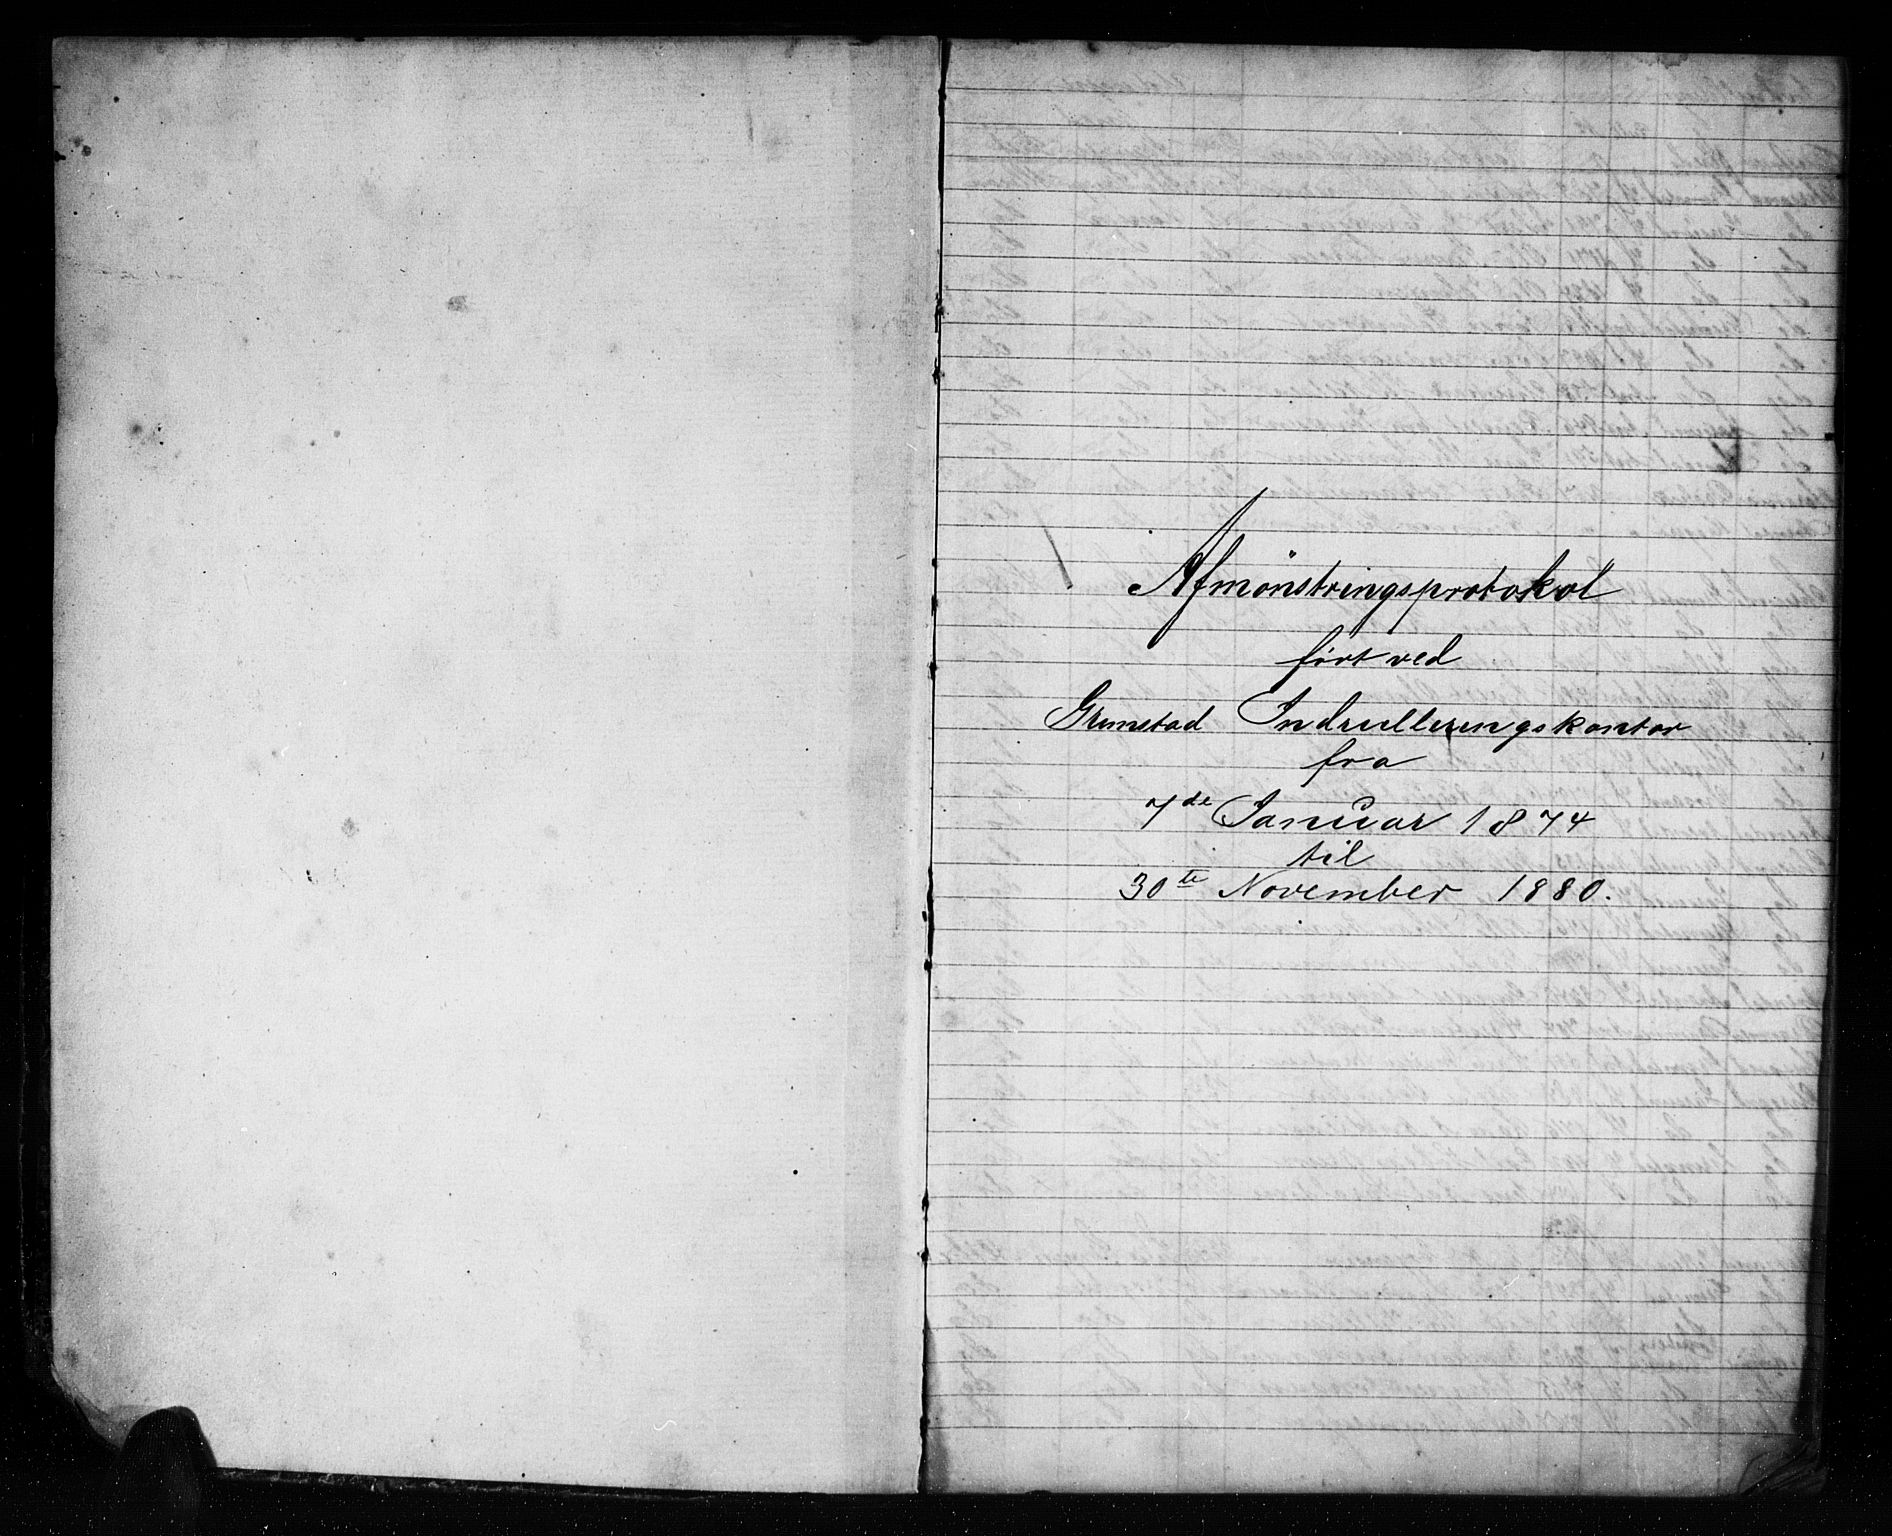 Afmönstringsprotokol
ført ved
Grimstad Indrulleringskontor
fra
7de Januar 1874
til
30te November 1880.